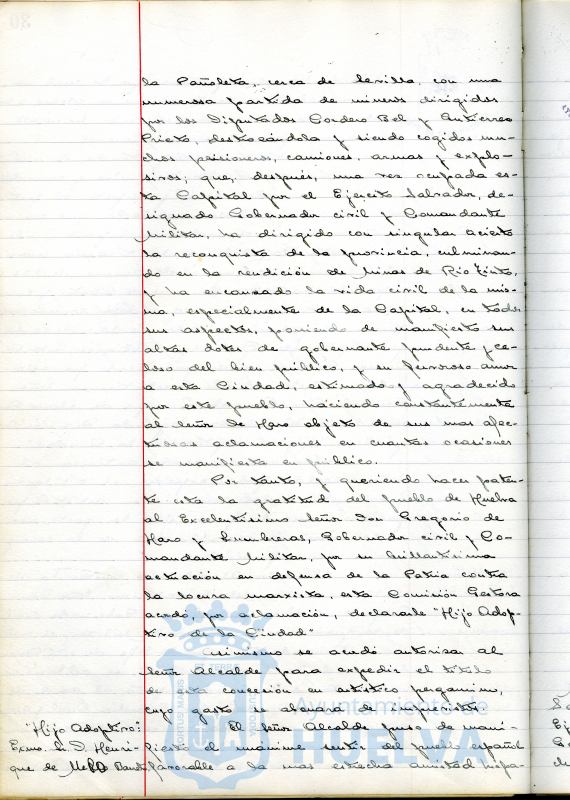 la Pañoleta, cerca de Sevilla, con una
numerosa partida de mineros dirigidos
por los Diputados Cordero Bel y Gutierrez
Prieto, destrozándola y siendo cogidos mu-
chos prisioneros, camiones, armas y explo-
sivos; que, después, una vez ocupada es-
ta Capital por el Ejercito Salvador, de-
signado Gobernador civil y Comandante
Militar, ha dirigido con singular acierto
la reconquista de la provincia, culminan-
do en la rendición de Minas de Rio Tinto,
y ha encauzado la vida civil de la mis-
ma, especialmente de la Capital, en todos
sus aspectos, poniendo de manifiesto sus
altas dotes de gobernante prudente y ce-
loso del bien público, y su fervoroso amor
a esta Ciudad, estimado y agradecido
por este pueblo, haciendo constantemente
al Señor de Haro objeto de sus mas afec-
tuosas aclamaciones en cuantas ocasiones
se manifiesta en público.
Por tanto, y queriendo hacer paten-
te esta la gratitud del pueblo de Huelva
al Excelentisimo Señor Don Gregorio de
Haro y Lumbreras, Gobernador civil y Co-
mandante Militar, por su brillantisima
actuación en defensa de la Patria contra
la locura marxista, esta Comisión Gestora
acordó, por aclamación, declararle "Hijo Adop-
tivo de la Ciudad"
Asimismo se acordó autorizar al
Señor Alcalde para expedir el titulo
de esta concesión en artistico pergamino,
cuyo gasto se abonará de imprevistos.
"Hijo Adoptivo": El Señor Alcalde puso de mani-
Excmo. S. D. Henri- fiesto el unánime sentir del pueblo español
que de Mello Barreto favorable a la mas estrecha amistad hispa-
Ayuntamiento de
HUELVA